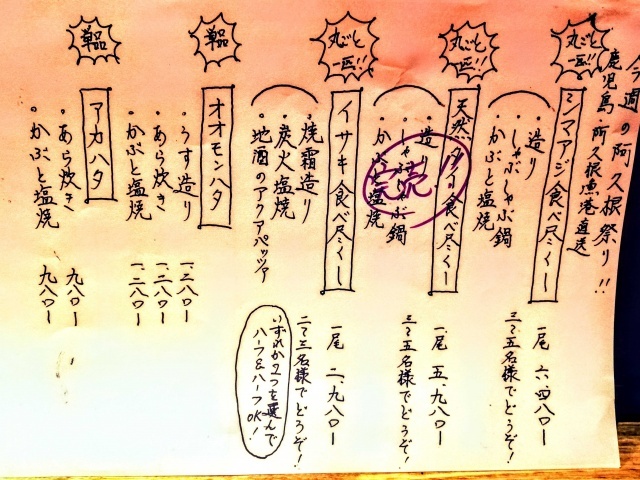 今週の阿久根祭り!!
鹿児島・阿久根漁港直送
丸ごと
一匹!!
シマアジ食べ尽くし
・造り
・しゃぶしゃぶ鍋
・かぶと塩焼
一尾 六、四八〇ー
三〜五名様でどうぞ!
丸ごと
一匹!!
天然
食べ尽くし
完売
・造り
・しゃぶしゃぶ鍋
・かぶと塩焼
一尾 五、九八〇ー
三〜五名様でどうぞ!
丸ごと
一匹!!
イサキ食べ尽くし
・焼霜造り
・炭火塩焼
・地酒のアクアパッツァ
一尾 二、九八〇ー
二〜三名様でどうぞ!
いずれか2つを選んで
ハーフ&ハーフOK!
単品
オオモンハタ
・うす造り 一、二八〇ー
・あら炊き 一、二八〇ー
・かぶと塩焼 一、二八〇ー
単品
アカハタ
・あら炊き 九八〇ー
・かぶと塩焼 九八〇ー